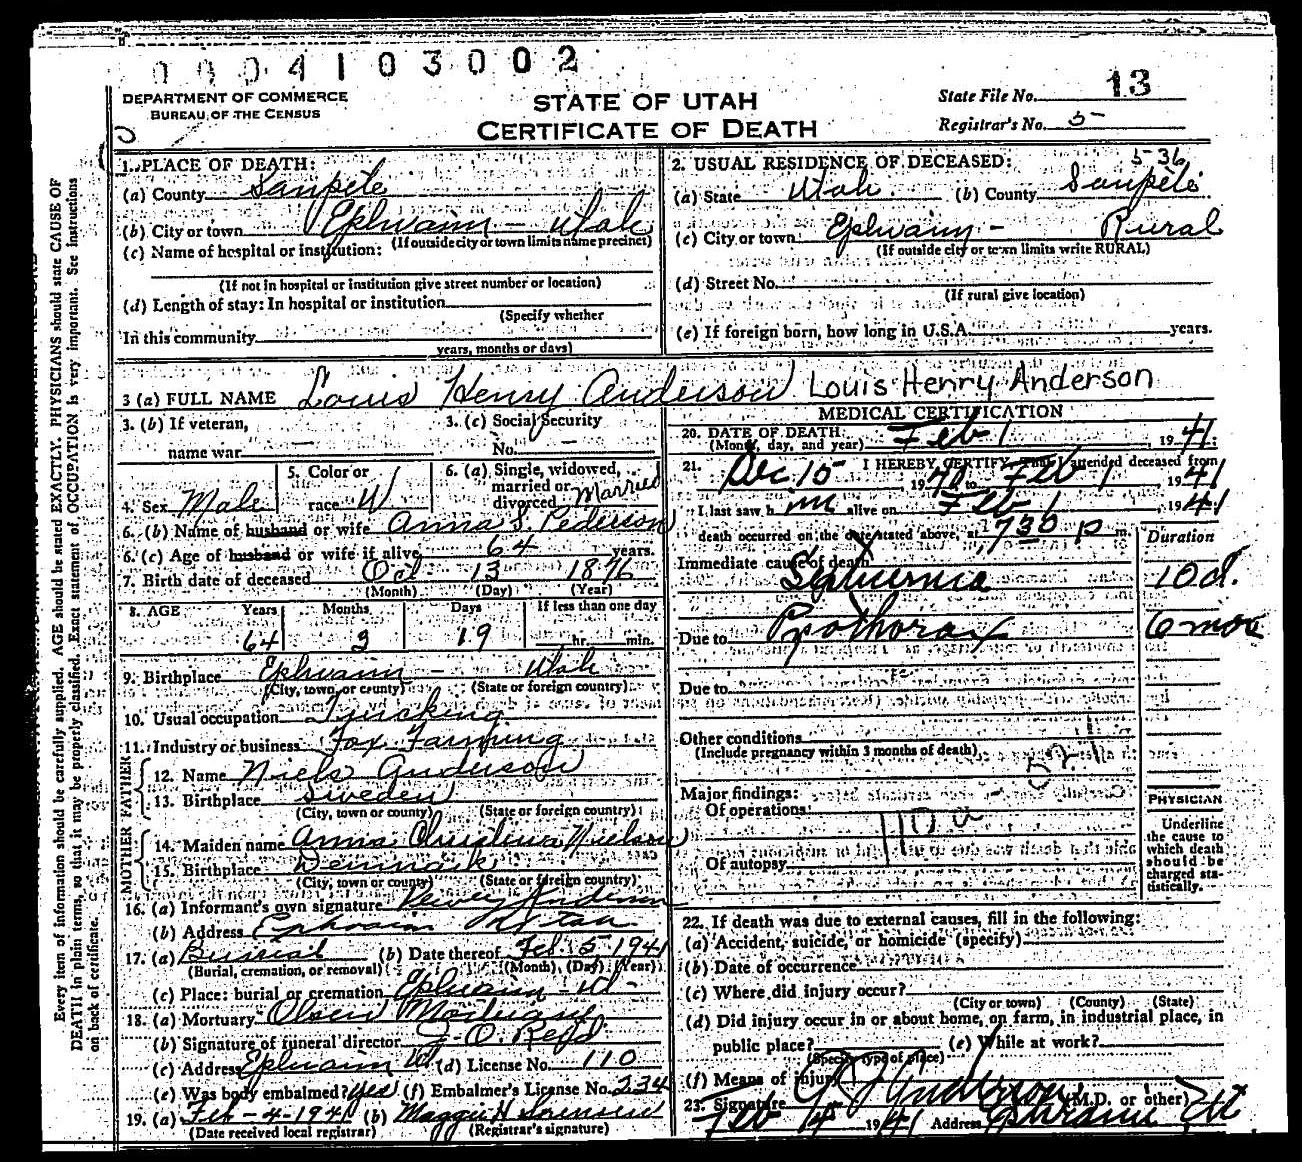 0004103002
DEPARTMENT OF COMMERCE
BUREAU OF THE CENSUS
STATE OF UTAH
CERTIFICATE OF DEATH
State File No. 13
Registrar's No. 5
Every item of information should be carefully supplied. AGE should be stated EXACTLY. PHYSICIANS should state CAUSE OF
DEATH in plain terms, so that it may be properly classified. Exact statement of OCCUPATION is very important. See instructions
on back of certificate.
1. PLACE OF DEATH:
(a) County Sanpete
(b) City or town Ephraim - Utah
(If outside city or town limits name precinct)
(c) Name of hospital or institution:
(If not in hospital or institution give street number or location)
(d) Length of stay: In hospital or institution
(Specify whether
In this community
years, months or days)
2. USUAL RESIDENCE OF DECEASED: 5-36
(a) State Utah (b) County Sanpete
(c) City or town Ephraim - Rural
(If outside city or town limits write RURAL)
(d) Street No.
(If rural give location)
(e) If foreign born, how long in U.S.A. years.
3 (a) FULL NAME Louis Henry Anderson Louis Henry Anderson
3. (b) If veteran,
name war —
3. (c) Social Security
No. —
4. Sex Male
5. Color or
race W
6. (a) Single, widowed,
married or
divorced Married
6. (b) Name of husband or wife Anna S. Pederson
6. (c) Age of husband or wife if alive 64 years.
7. Birth date of deceased Oct 13 1876
(Month) (Day) (Year)
8. AGE Years Months Days If less than one day
64 3 19 hr. min.
9. Birthplace Ephraim - Utah
(City, town, or county) (State or foreign country)
10. Usual occupation Trucking
11. Industry or business Fox Farming
FATHER
12. Name Niels Anderson
13. Birthplace Sweden
(City, town or county) (State or foreign country)
MOTHER
14. Maiden name Anna Christina Nielson
15. Birthplace Denmark
(City, town or county) (State or foreign country)
16. (a) Informant's own signature Dewey Anderson
(b) Address Ephraim Utah
17. (a) Burial (b) Date thereof Feb. 5 1941
(Burial, cremation, or removal) (Month), (Day) (Year)
(c) Place: burial or cremation Ephraim - Ut -
18. (a) Mortuary Olsen Mortuary
(b) Signature of funeral director
(c) Address Ephraim Ut (d) License No. 110
(e) Was body embalmed? Yes (f) Embalmer's License No. 234
19. (a) Feb - 4 - 1941 (b) Maggie H Sorensen
(Date received local registrar) (Registrar's signature)
MEDICAL CERTIFICATION
20. DATE OF DEATH:
(Month, day, and year) Feb 1 1941
21. I HEREBY CERTIFY, That I attended deceased from
Dec 15 1940 to Feb 1 1941
I last saw him alive on Feb 1 1941
death occurred on the date stated above, at 7 30 p m.
Duration
Immediate cause of death
Sephicemia 10 d.
Due to Pyothorax 6 mos
Due to
Other conditions
(Include pregnancy within 3 months of death)
Major findings:
Of operations:
110 a
Of autopsy
PHYSICIAN
Underline
the cause to
which death
should be
charged sta-
tistically.
22. If death was due to external causes, fill in the following:
(a) Accident, suicide, or homicide (specify)
(b) Date of occurrence
(c) Where did injury occur?
(City or town) (County) (State)
(d) Did injury occur in or about home, on farm, in industrial place, in
public place? (e) While at work?
(Specify type of place)
(f) Means of injury
23. Signature Anderson (M.D. or other)
Feb 4 1941 Address Ephraim Ut